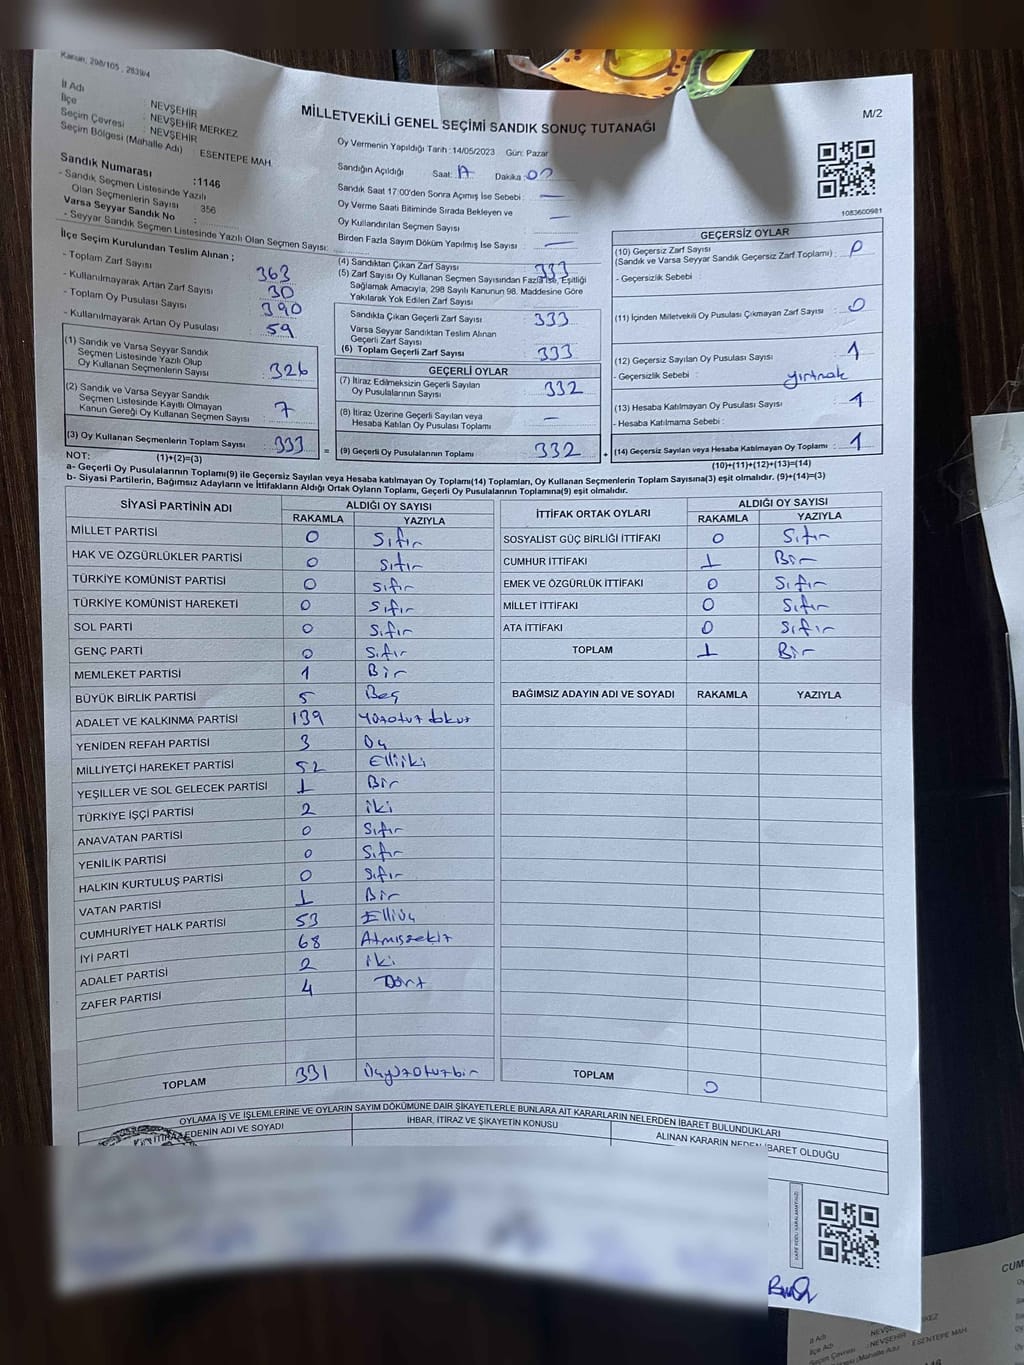 Kanun; 298/105 , 2839/4
İl Adı : NEVŞEHİR
İlçe : NEVŞEHİR MERKEZ
Seçim Çevresi : NEVŞEHİR
Seçim Bölgesi (Mahalle Adı) : ESENTEPE MAH.
MİLLETVEKİLİ GENEL SEÇİMİ SANDIK SONUÇ TUTANAĞI
M/2
1083600981
Sandık Numarası :1146
- Sandık Seçmen Listesinde Yazılı
Olan Seçmenlerin Sayısı 356
Varsa Seyyar Sandık No :
- Seyyar Sandık Seçmen Listesinde Yazılı Olan Seçmen Sayısı:
Oy Vermenin Yapıldığı Tarih :14/05/2023 Gün: Pazar
Sandığın Açıldığı Saat: Dakika :
Sandık Saat 17:00'den Sonra Açımış İse Sebebi : —
Oy Verme Saati Bitiminde Sırada Bekleyen ve
Oy Kullandırılan Seçmen Sayısı —
Birden Fazla Sayım Döküm Yapılmış İse Sayısı —
İlçe Seçim Kurulundan Teslim Alınan ;
- Toplam Zarf Sayısı 363
- Kullanılmayarak Artan Zarf Sayısı 30
- Toplam Oy Pusulası Sayısı 390
- Kullanılmayarak Artan Oy Pusulası 59
(1) Sandık ve Varsa Seyyar Sandık
Seçmen Listesinde Yazılı Olup
Oy Kullanan Seçmenlerin Sayısı 326
(2) Sandık ve Varsa Seyyar Sandık
Seçmen Listesinde Kayıtlı Olmayan
Kanun Gereği Oy Kullanan Seçmen Sayısı 7
(3) Oy Kullanan Seçmenlerin Toplam Sayısı 333
(4) Sandıktan Çıkan Zarf Sayısı 333
(5) Zarf Sayısı Oy Kullanan Seçmen Sayısından Fazla İse, Eşitliği
Sağlamak Amacıyla, 298 Sayılı Kanunun 98. Maddesine Göre
Yakılarak Yok Edilen Zarf Sayısı
Sandıkla Çıkan Geçerli Zarf Sayısı 333
Varsa Seyyar Sandıktan Teslim Alınan
Geçerli Zarf Sayısı
(6) Toplam Geçerli Zarf Sayısı 333
GEÇERLİ OYLAR
(7) İtiraz Edilmeksizin Geçerli Sayılan
Oy Pusulalarının Sayısı 332
(8) İtiraz Üzerine Geçerli Sayılan veya
Hesaba Katılan Oy Pusulası Toplamı —
= (9) Geçerli Oy Pusulalarının Toplamı 332 +
GEÇERSİZ OYLAR
(10) Geçersiz Zarf Sayısı
(Sandık ve Varsa Seyyar Sandık Geçersiz Zarf Toplamı) : 0
- Geçersizlik Sebebi
(11) İçinden Milletvekili Oy Pusulası Çıkmayan Zarf Sayısı : 0
(12) Geçersiz Sayılan Oy Pusulası Sayısı 1
- Geçersizlik Sebebi : yırtmak
(13) Hesaba Katılmayan Oy Pusulası Sayısı 1
- Hesaba Katılmama Sebebi :
(14) Geçersiz Sayılan veya Hesaba Katılmayan Oy Toplamı : 1
NOT: (1)+(2)=(3) (10)+(11)+(12)+(13)=(14)
a- Geçerli Oy Pusulalarının Toplamı(9) ile Geçersiz Sayılan veya Hesaba katılmayan Oy Toplamı(14) Toplamları, Oy Kullanan Seçmenlerin Toplam Sayısına(3) eşit olmalıdır. (9)+(14)=(3)
b- Siyasi Partilerin, Bağımsız Adayların ve İttifakların Aldığı Ortak Oyların Toplamı, Geçerli Oy Pusulalarının Toplamına(9) eşit olmalıdır.
SİYASİ PARTİNİN ADI ALDIĞI OY SAYISI
RAKAMLA YAZIYLA
MİLLET PARTİSİ 0 Sıfır
HAK VE ÖZGÜRLÜKLER PARTİSİ 0 sıfır
TÜRKİYE KOMÜNİST PARTİSİ 0 sıfır
TÜRKİYE KOMÜNİST HAREKETİ 0 sıfır
SOL PARTİ 0 sıfır
GENÇ PARTİ 0 sıfır
MEMLEKET PARTİSİ 1 Bir
BÜYÜK BİRLİK PARTİSİ 5 Beş
ADALET VE KALKINMA PARTİSİ 139 Yüzotuz dokuz
YENİDEN REFAH PARTİSİ 3 Üç
MİLLİYETÇİ HAREKET PARTİSİ 52 Elliiki
YEŞİLLER VE SOL GELECEK PARTİSİ 1 Bir
TÜRKİYE İŞÇİ PARTİSİ 2 iki
ANAVATAN PARTİSİ 0 Sıfır
YENİLİK PARTİSİ 0 Sıfır
HALKIN KURTULUŞ PARTİSİ 0 Sıfır
VATAN PARTİSİ 1 Bir
CUMHURİYET HALK PARTİSİ 53 Elliüç
İYİ PARTİ 68 Atmışsekiz
ADALET PARTİSİ 2 iki
ZAFER PARTİSİ 4 Dört
TOPLAM 331 Üçyüzotuzbir
İTTİFAK ORTAK OYLARI ALDIĞI OY SAYISI
RAKAMLA YAZIYLA
SOSYALİST GÜÇ BİRLİĞİ İTTİFAKI 0 Sıfır
CUMHUR İTTİFAKI 1 Bir
EMEK VE ÖZGÜRLÜK İTTİFAKI 0 Sıfır
MİLLET İTTİFAKI 0 Sıfır
ATA İTTİFAKI 0 Sıfır
TOPLAM 1 Bir
BAĞIMSIZ ADAYIN ADI VE SOYADI RAKAMLA YAZIYLA
TOPLAM 0
OYLAMA İŞ VE İŞLEMLERİNE VE OYLARIN SAYIM DÖKÜMÜNE DAİR ŞİKAYETLERLE BUNLARA AİT KARARLARIN NELERDEN İBARET BULUNDUKLARI
EDENİN ADI VE SOYADI İHBAR, İTİRAZ VE ŞİKAYETİN KONUSU ALINAN KARARIN NEDEN İBARET OLDUĞU
CUM
İl Adı : NEVŞEHİR
İlçe Adı : MERKEZ
Seçim Çevresi : NEVŞEHİR
(Mahalle Adı) : ESENTEPE MAH.